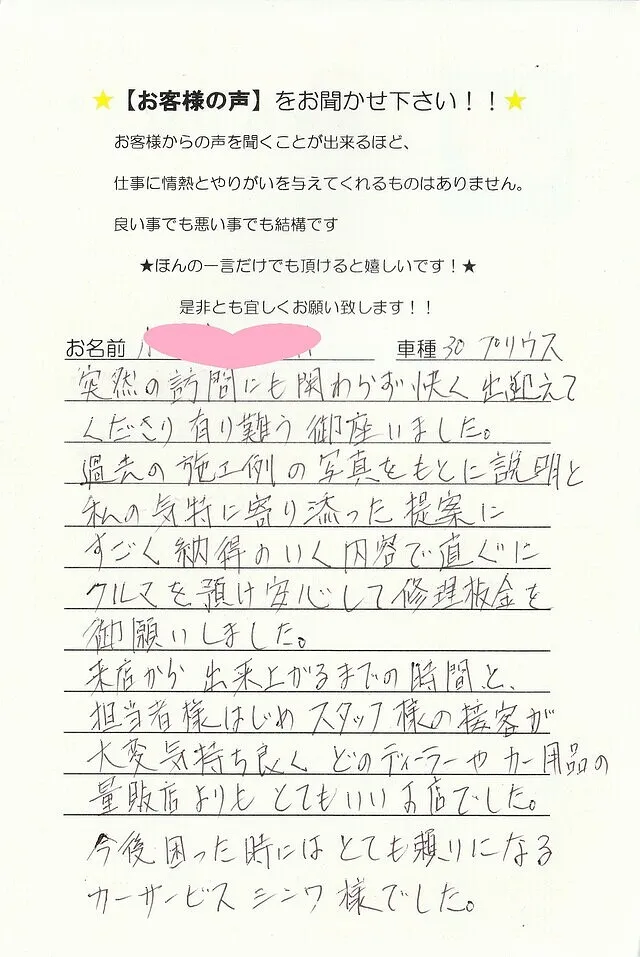 ★【お客様の声】をお聞かせ下さい！！★
お客様からの声を聞くことが出来るほど、
仕事に情熱とやりがいを与えてくれるものはありません。
良い事でも悪い事でも結構です
★ほんの一言だけでも頂けると嬉しいです！★
是非とも宜しくお願い致します！！
お名前 車種 30 プリウス
突然の訪問にも関わらず快く出迎えて
くださり有り難う御座いました。
過去の施工例の写真をもとに説明と
私の気持に寄り添った提案に
すごく納得のいく内容で直ぐに
クルマを預け安心して修理板金を
御願いしました。
来店から出来上がるまでの時間と、
担当者様はじめスタッフ様の接客が
大変気持ち良く どのディーラーやカー用品の
量販店よりも とてもいいお店でした。
今後困った時にはとても頼りになる
カーサービス シンワ様でした。